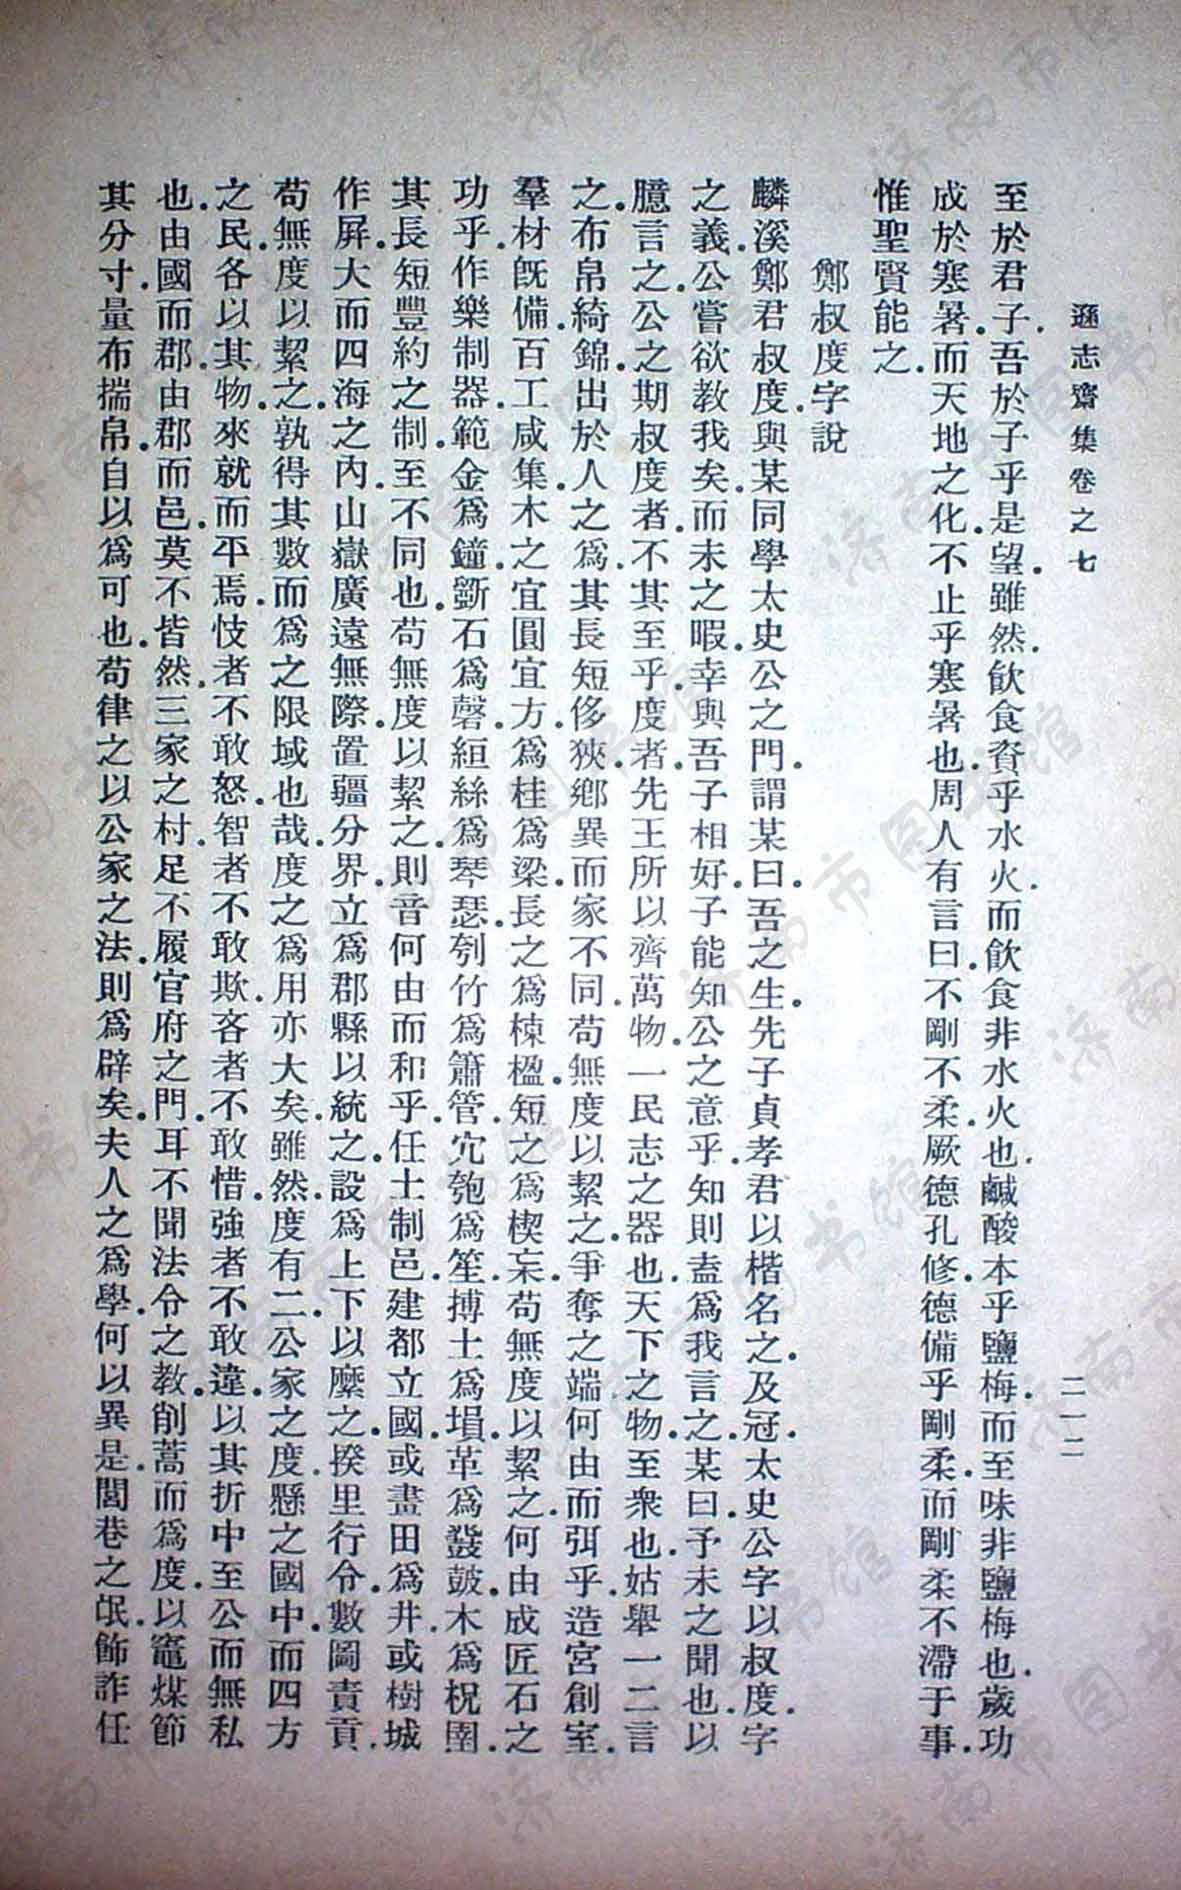 遜志齋集卷之七　二一二
至於君子.吾於子乎是望.雖然.飲食資乎水火.而飲食非水火也.鹹酸本乎鹽梅.而至味非鹽梅也.歲功
成於寒暑.而天地之化.不止乎寒暑也.周人有言曰.不剛不柔.厥德孔修.德備乎剛柔.而剛柔不滯于事.
惟聖賢能之.
鄭叔度字說
麟溪鄭君叔度.與某同學太史公之門.謂某曰.吾之生.先子貞孝君以楷名之.及冠.太史公字以叔度.字
之義.公嘗欲教我矣.而未之暇.幸與吾子相好.子能知公之意乎.知則盍爲我言之.某曰.予未之聞也.以
臆言之.公之期叔度者.不其至乎.度者.先王所以齊萬物.一民志之器也.天下之物.至衆也.姑舉一二言
之.布帛綺錦.出於人之爲.其長短侈狹.鄉異而家不同.苟無度以絜之.爭奪之端.何由而弭乎.造宮創室.
羣材旣備.百工咸集.木之宜圓宜方.爲桂爲梁.長之爲棟楹.短之爲楔杗.苟無度以絜之.何由成匠石之
功乎.作樂制器.範金爲鐘.斵石爲磬.絙絲爲琴瑟.刳竹爲簫管.宂匏爲笙.搏土爲塤.革爲鼗鼓.木爲柷圉.
其長短豐約之制.至不同也.苟無度以絜之.則音何由而和乎.任土制邑.建都立國.或畫田爲井.或樹城
作屏.大而四海之內.山嶽廣遠無際.置疆分界.立爲郡縣以統之.設爲上下以縻之.揆里行令.數圖責貢.
苟無度以絜之.孰得其數而爲之限域也哉.度之爲用亦大矣.雖然.度有二.公家之度.懸之國中.而四方
之民.各以其物.來就而平焉.忮者不敢怒.智者不敢欺.吝者不敢惜.強者不敢違.以其折中至公而無私
也.由國而郡.由郡而邑.莫不皆然.三家之村.足不履官府之門.耳不聞法令之教.削蒿而爲度.以竈煤節
其分寸.量布揣帛.自以爲可也.苟律之以公家之法.則爲辟矣.夫人之爲學.何以異是.閭巷之氓.飾詐任